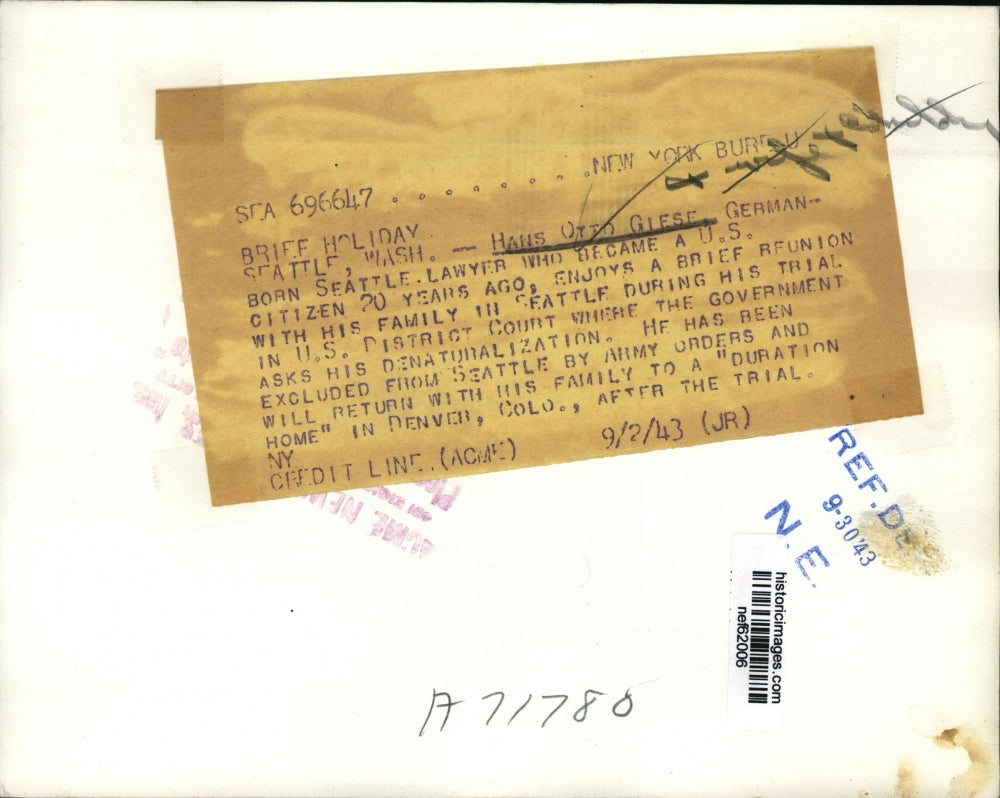 SEA 696647 . . . . . . . . NEW YORK BUREAU
BRIEF HOLIDAY
SEATTLE, WASH. — HANS OTTO GIESE, GERMAN-
BORN SEATTLE LAWYER WHO BECAME A U.S.
CITIZEN 20 YEARS AGO, ENJOYS A BRIEF REUNION
WITH HIS FAMILY IN SEATTLE DURING HIS TRIAL
IN U.S. DISTRICT COURT WHERE THE GOVERNMENT
ASKS HIS DENATURALIZATION. HE HAS BEEN
EXCLUDED FROM SEATTLE BY ARMY ORDERS AND
WILL RETURN WITH HIS FAMILY TO A "DURATION
HOME" IN DENVER, COLO., AFTER THE TRIAL.
NY
CREDIT LINE (ACME) 9/2/43 (JR)
ACME NEW
REF. DE
9-30'43
N. E.
historicimages.com
nef62006
A 71780